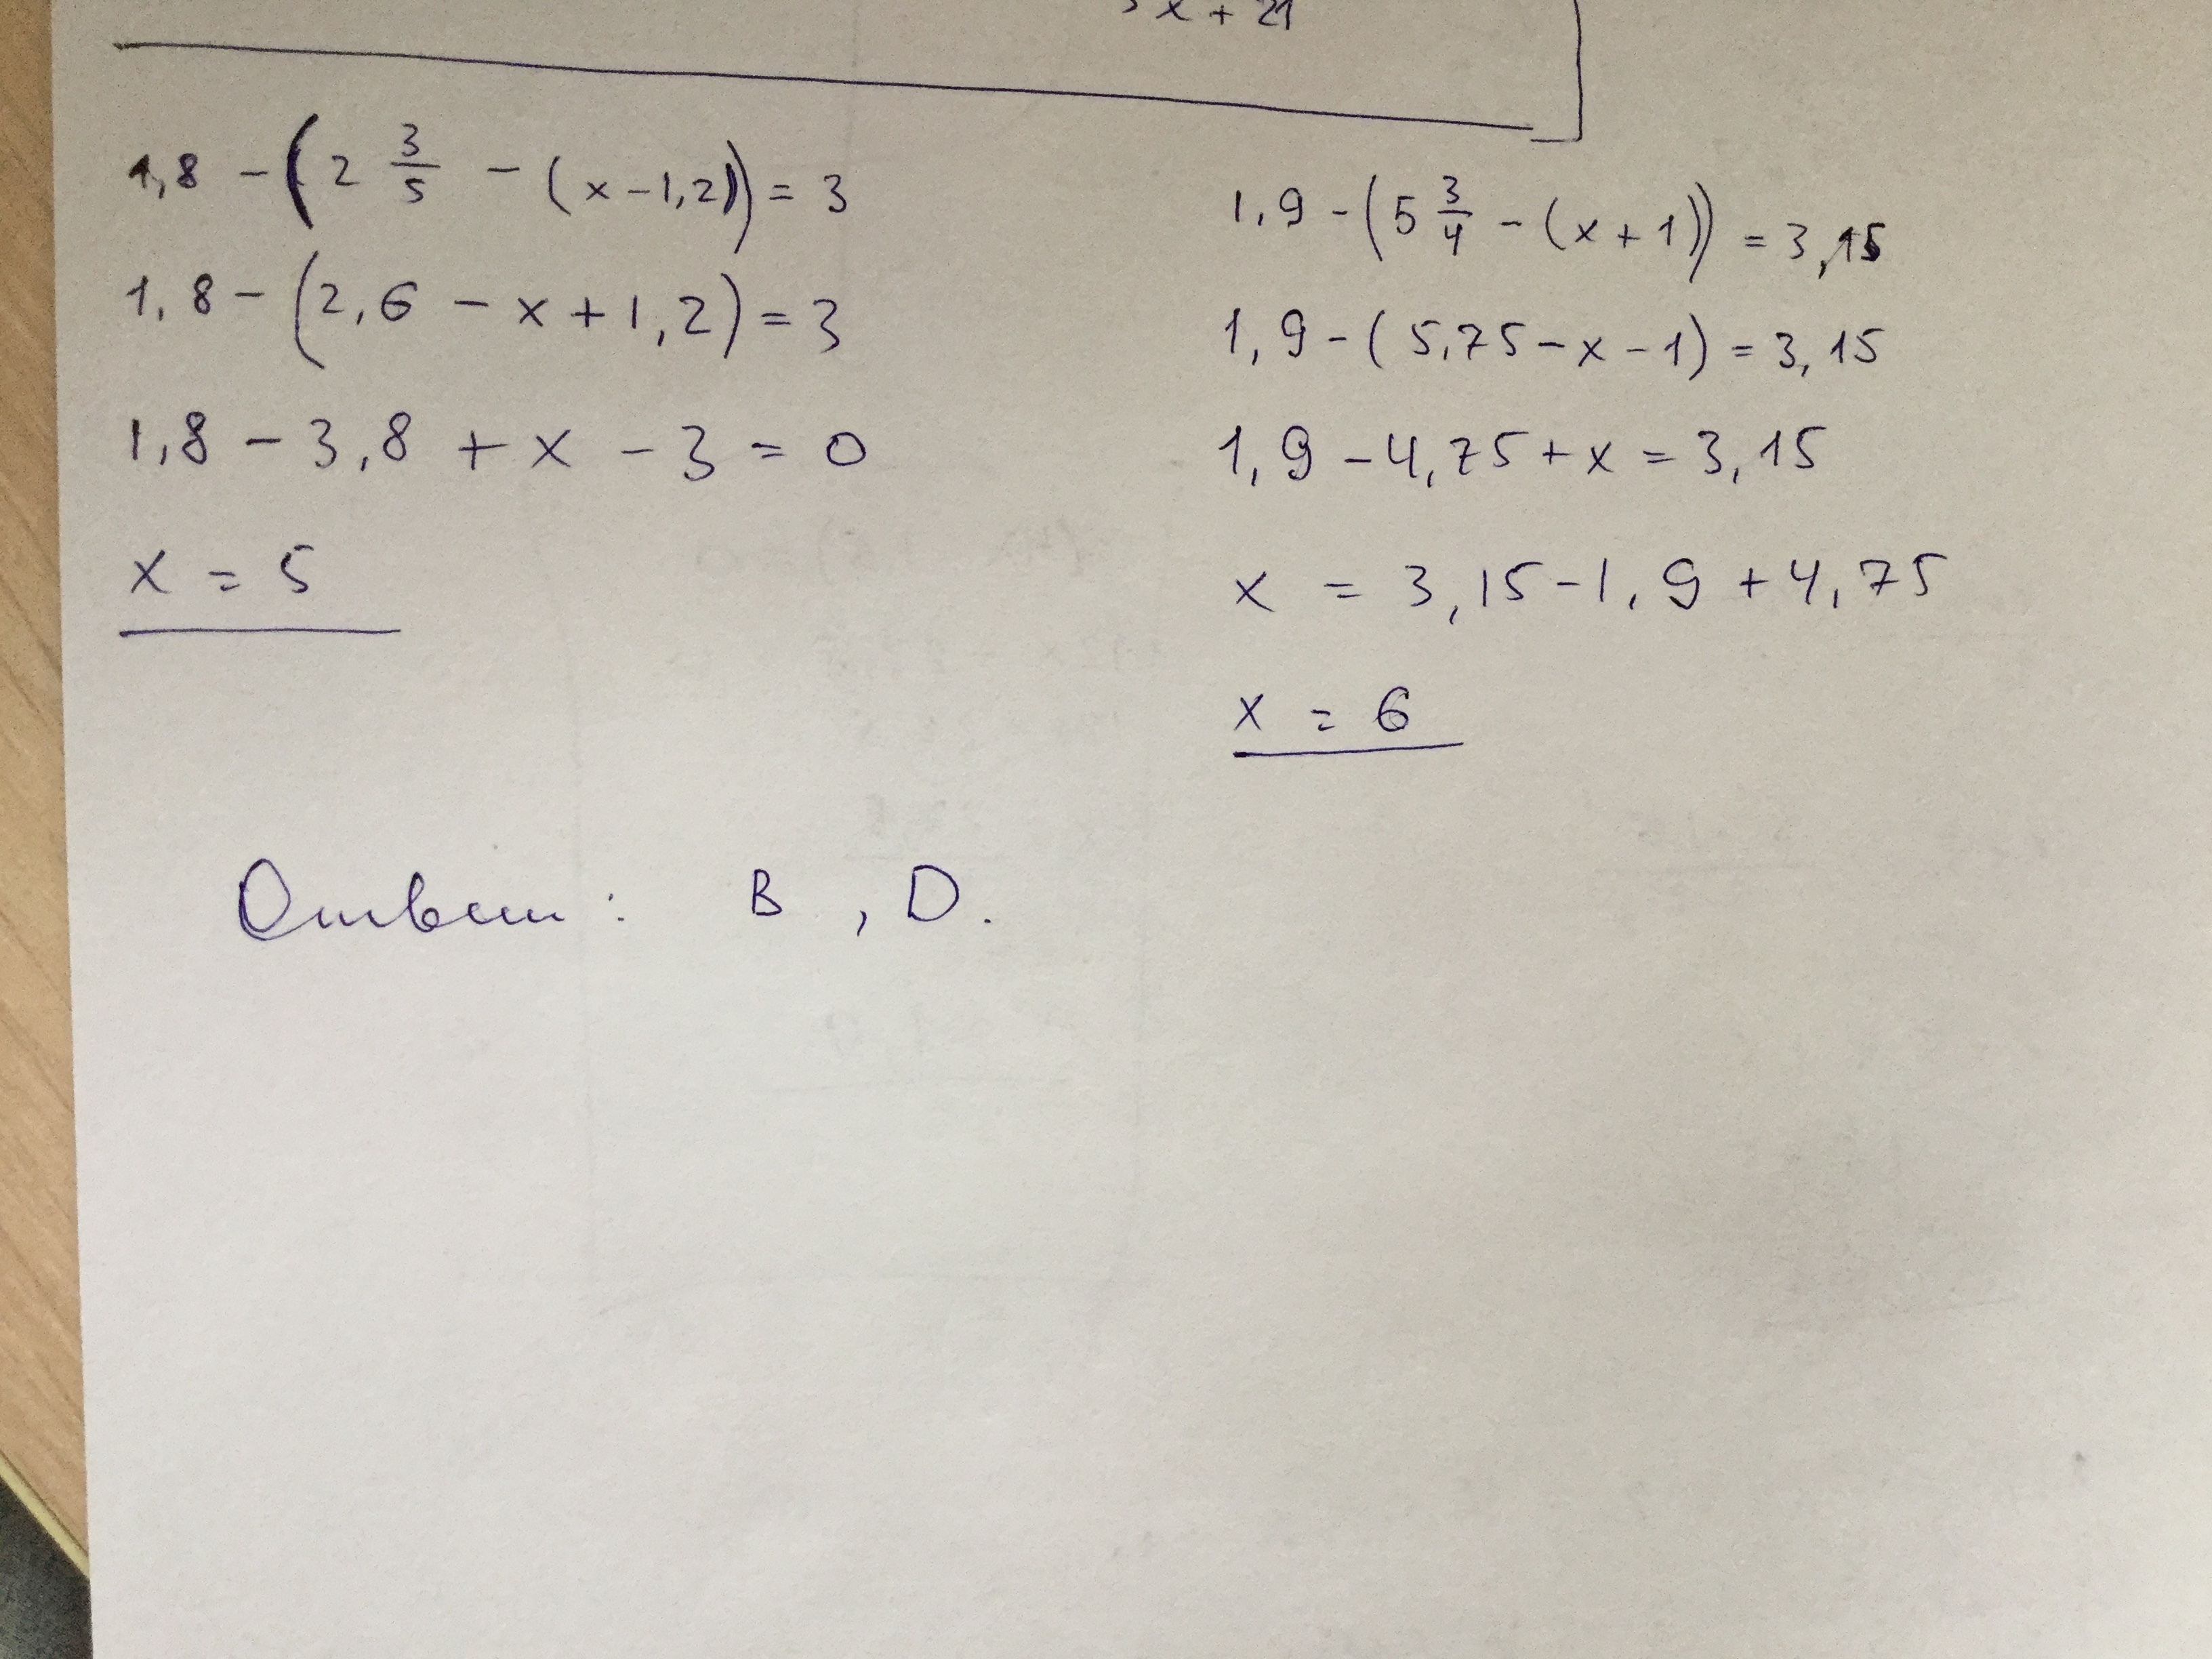 x + 21
1,8 - (2 3/5 - (x - 1,2)) = 3
1,8 - (2,6 - x + 1,2) = 3
1,8 - 3,8 + x - 3 = 0
x = 5
1,9 - (5 3/4 - (x + 1)) = 3,15
1,9 - (5,75 - x - 1) = 3,15
1,9 - 4,75 + x = 3,15
x = 3,15 - 1,9 + 4,75
x = 6
Ответ: B, D.